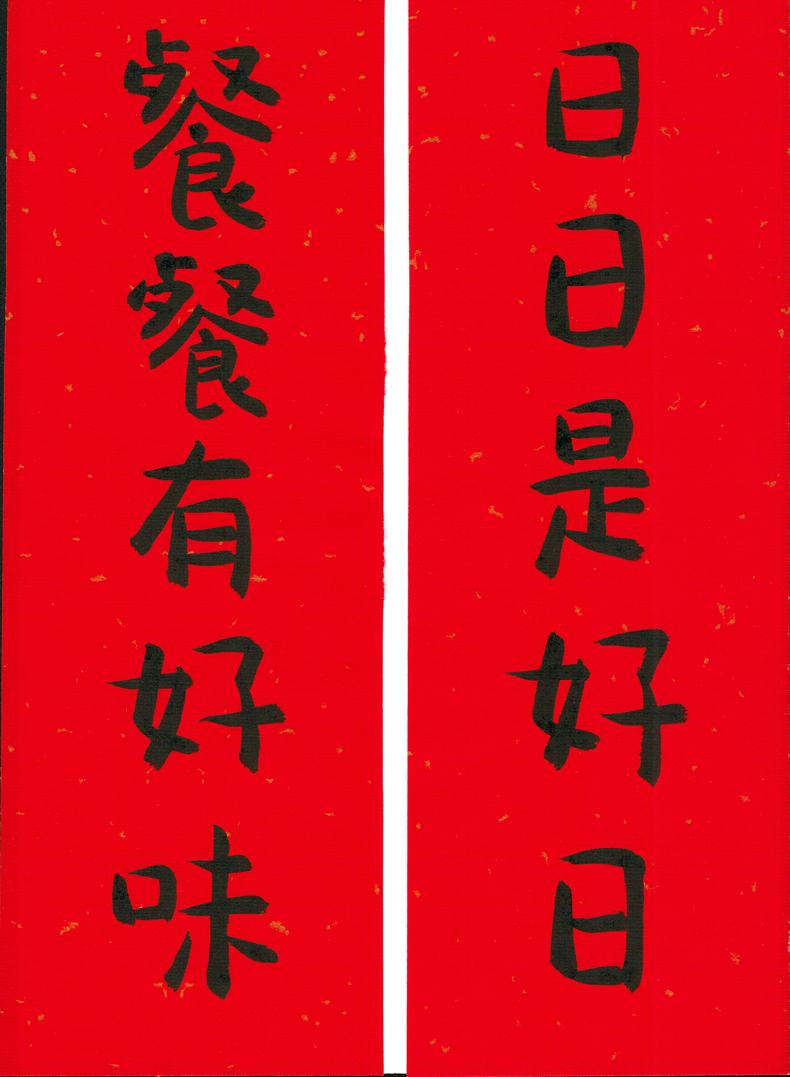 日日是好日
餐餐有好味